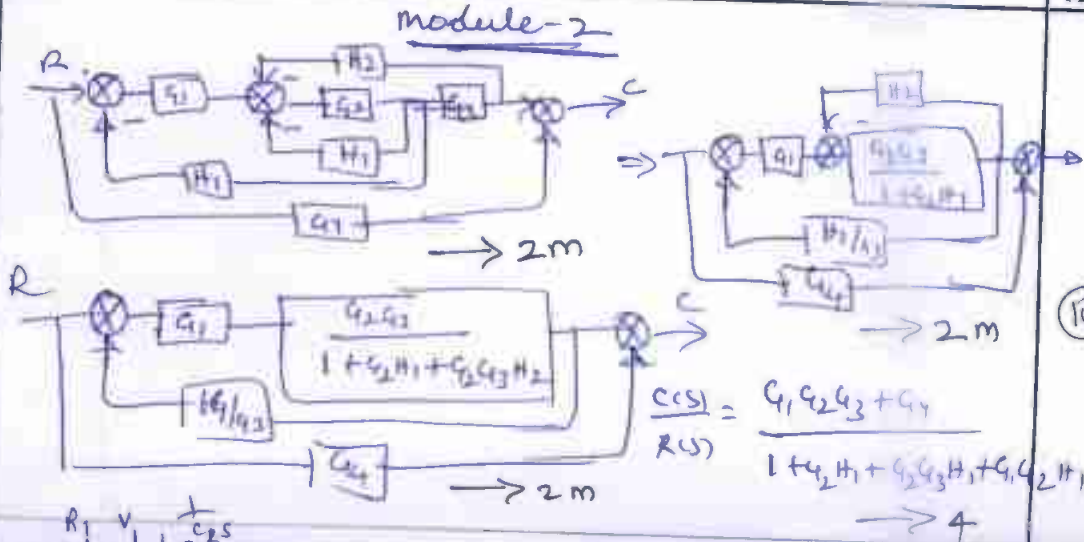 module-2
R
H2
G1
G2
G3
C
H1
H1
G4
→ 2m
⇒
H2
G1
G2G3
1+G2H1
H1/G3
G4
→ 2m
R
G1
G2G3
1+G2H1+G2G3H2
H1/G3
G4
C
→ 2m
C(s) = G1G2G3+G4
R(s) 1+G2H1+G2G3H1+G1G2H1
→ 4
R1 V 1
C2S